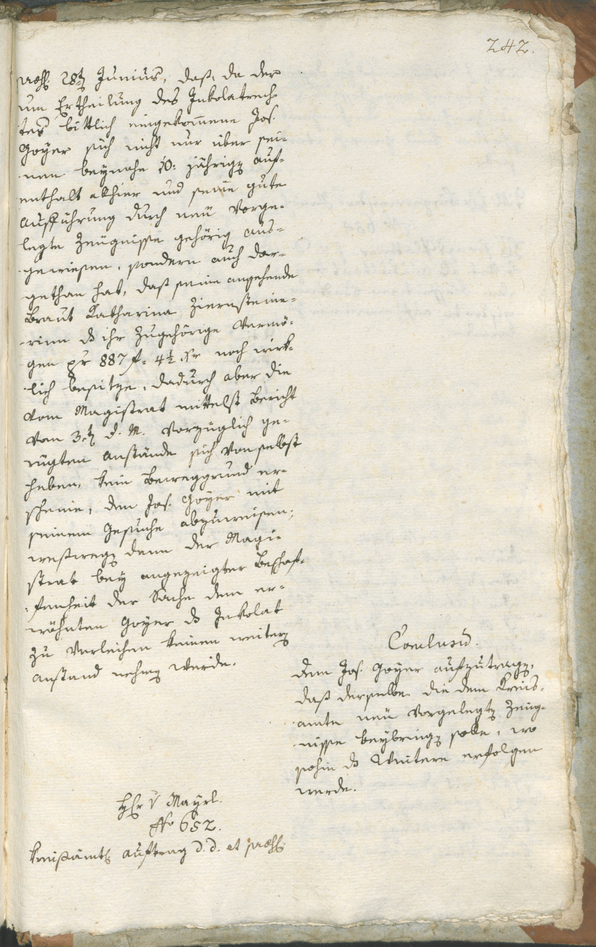 242.
præs. 28t Junius, daß, da der
um Ertheilung des Inkolatrech-
tes bittlich eingekommene Jos.
Goÿer sich nicht nur über sei-
nen beynahe 10: jährigen Auf-
enthalt alhier und seine gute
Aufführung durch neu vorge-
legte Zeugnisse gehörig aus-
gewiesen, sondern auch dar-
gethan hat, daß seine angehende
Braut Katharina Ziernsteine-
rinn ds ihr zugehörige Vermö-
gen pr 887 f. 4½ xr noch wirk-
lich besitze, dadurch aber die
vom Magistrat mittelst Bericht
vom 3t d. M. vorzüglich ge-
rügten Anstände sich von selbst
heben, kein Beweggrund er-
scheine, den Jos. Goÿer mit
seinem Gesuche abzuweisen;
weswegen denn der Magi-
strat beÿ angezeigter Beschaf-
fenheit der Sache dem er-
wähnten Goÿer ds Inkolat
zu verleihen keinen weitern
Anstand nehmen werde.
Conclusum.
Dem Jos. Goÿer aufzutragen,
daß derselbe die dem Kreis-
amte neu vorgelegten Zeug-
nisse beybringen solle, wo
sohin ds Weitere erfolgen
werde.
Hr v Mayrl.
No 652.
Kreisamts Auftrag d.d. et præs.